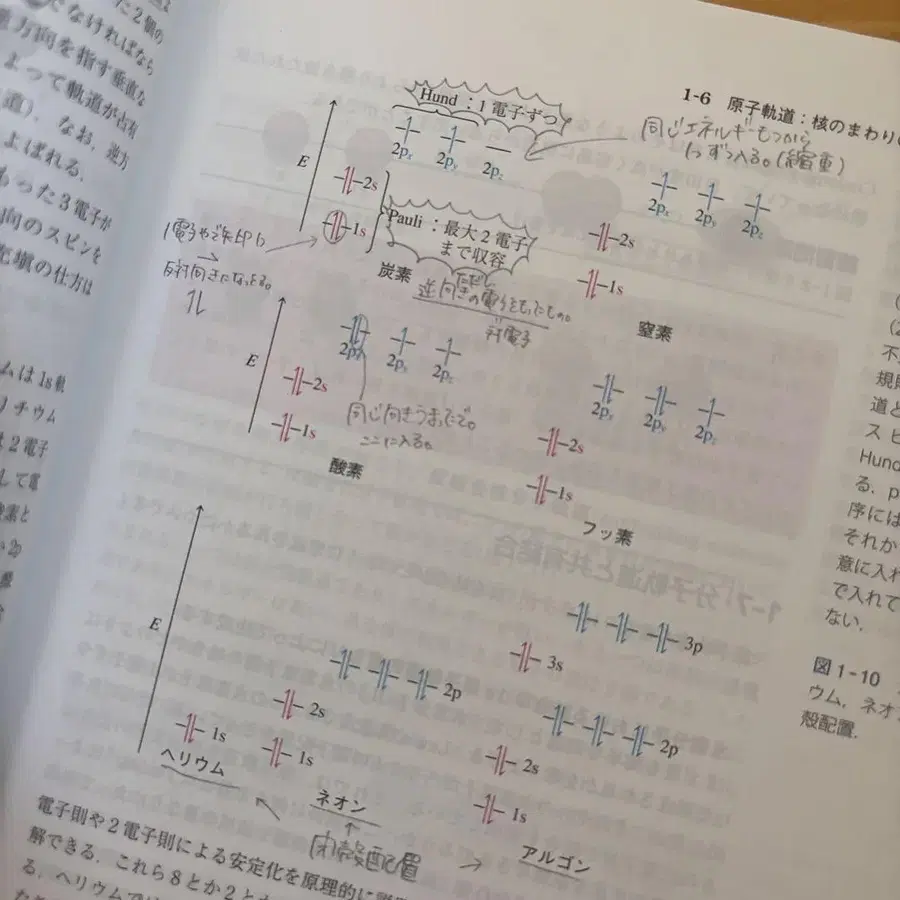 た2個の
でなければなら
方向を指す垂直な
よって軌道が占有
道).なお,逆方
よばれる.
もった3電子が
向のスピンを
充塡の仕方は
ムは1s軌
リチウム
は2電子
して電
1-6 原子軌道:核のまわり
同じエネルギーもつから
1つずつ入る。(縮重)
Hund:1電子ずつ
E
2px
2py
2pz
2s
1s
Pauli:最大2電子
まで収容
炭素
ただし
逆向きの電子をもったもの。
対電子
反対向きになっとる。
2px
2py
2pz
2s
1s
窒素
E
2px
2py
2pz
2s
1s
同じ向きうまったで。
ここに入る。
酸素
2px
2py
2pz
2s
1s
フッ素
E
1s
ヘリウム
2p
2s
1s
ネオン
閉殻配置
3p
3s
2p
2s
1s
アルゴン
不
規則
道と
スピ
Hund
る.p
序には
それか
意に入れ
で入れて
ない.
図1-10
ウム,ネオ
殻配置.
電子則や2電子則による安定化を原理的に
解できる.これら8とか2と
る.ヘリウムでは